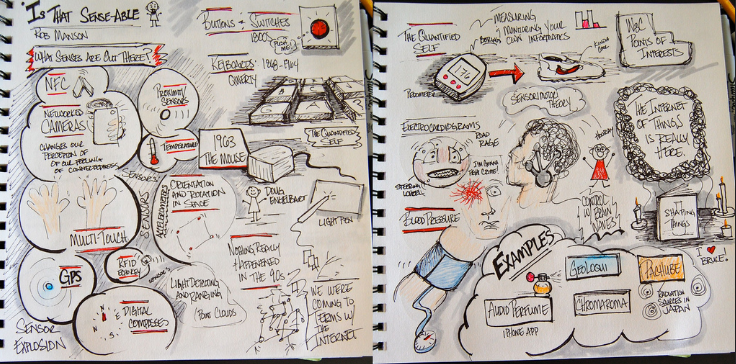 "IS THAT SENSE-ABLE"
ROB MANSON
WHAT SENSES ARE OUT THERE?
NFC
NETWORKED
CAMERAS
CHANGES OUR
PERCEPTION OF
OF OUR FEELING
OF CONNECTEDNESS
PROXIMITY
SENSOR
TEMPERATURE
SENSORS
SENSORS
ACCELEROMETERS
MULTI-TOUCH
ORIENTATION
AND ROTATION
IN SPACE
GPS
RFID
DIGITAL
COMPASSES
SENSOR
EXPLOSION
LIGHT DETECTING
AND RANGING
POINT CLOUDS
BUTTONS + SWITCHES
1800s
PUSH ME!
KEYBOARDS 1868-
QWERTY
1963
THE MOUSE
THE QUANTIFIED
SELF
DOUG
ENGELBART
LIGHT PEN
NOTHING REALLY
HAPPENED
IN THE 90s
WE WERE
COMING TO
TERMS W/
THE
INTERNET
THE QUANTIFIED
SELF
MEASURING
MONITORING YOUR
OWN INFOMATICS
PEDOMETER
SENSORIMOTOR
THEORY
W3C
POINTS OF
INTERESTS
ELECTROCARDIOGRAMS
ROAD
RAGE
STEERING
WHEEL
HOORAY!
CONTROL
W/ BRAIN
WAVES
THE INTERNET
OF THINGS
IS REALLY
HERE.
BLOOD PRESSURE
IT
STARTING
THINGS
I ♥
BRUCE!
EXAMPLES
AUDIO PERFUME
IPHONE APP
GEOLOQI
CHROMAROMA
PACHUBE
RADIATION
SOURCES IN
JAPAN